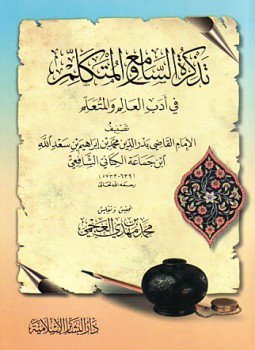 تذكرة السامع والمتكلم
في أدب العالم والمتعلم
تصنيف
الإمام القاضي بدر الدين محمد بن إبراهيم بن سعد الله
ابن جماعة الكناني الشافعي
(٦٣٩-٧٣٣ه)
رحمه الله تعالى
تحقيق وتعليق
محمد بن مهدي العجمي
دار البشائر الإسلامية